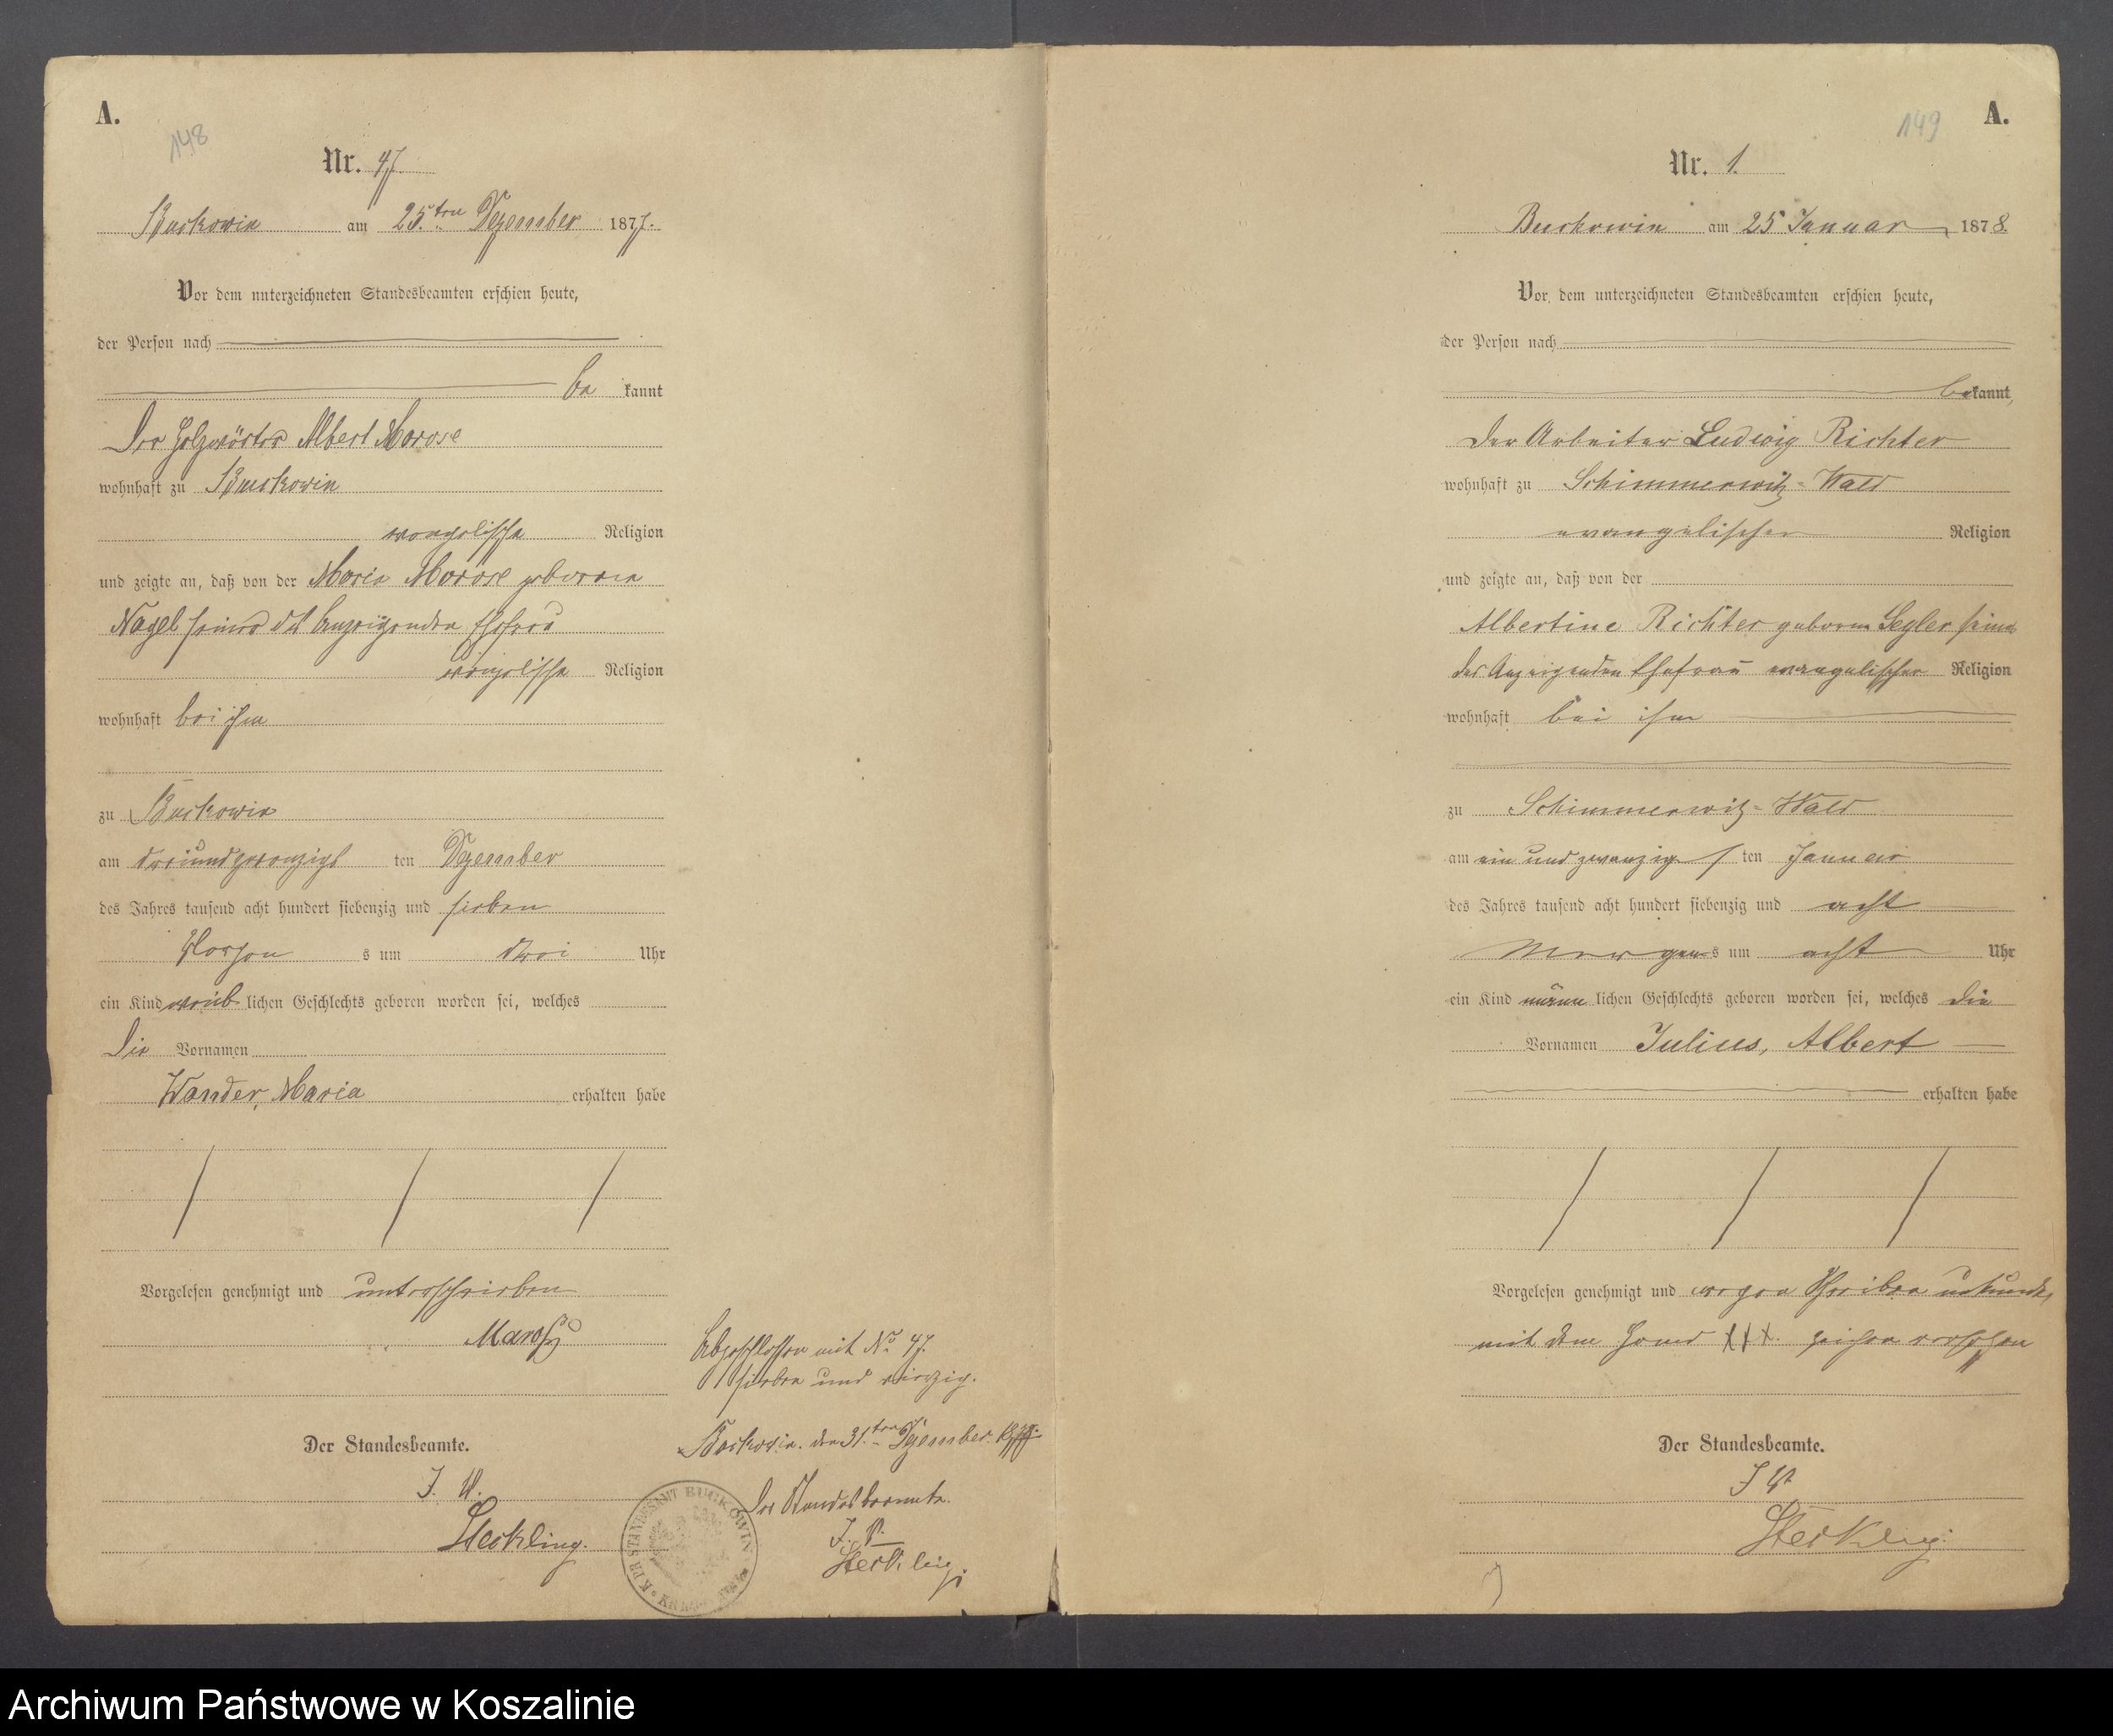 A.
148
Nr. 47.
Buckowin am 25.ten Dezember 1877.
Vor dem unterzeichneten Standesbeamten erschien heute,
der Person nach
be kannt
Der Holzwärter Albert Morose
wohnhaft zu Buckowin
evangelischer Religion
und zeigte an, daß von der Maria Morose geborene
Nagel seiner des Anzeigenden Ehefrau
evangelischer Religion
wohnhaft bei ihm
zu Buckowin
am dreiundzwanzigs ten Dezember
des Jahres tausend acht hundert siebenzig und sieben
Morgen s um drei Uhr
ein Kind weib lichen Geschlechts geboren worden sei, welches
die Vornamen
Wander, Maria erhalten habe
Vorgelesen genehmigt und unterschrieben
Der Standesbeamte.
I. V.
Steckling.
Abgeschlossen mit No 47.
sieben und vierzig.
Buckowin. den 31.ten Dezember. 1877.
Der Standesbeamte.
I. V.
Steckling.
K. PR. STANDESAMT BUCKOWIN
A.
149
Nr. 1.
Buckowin am 25 Januar 1878.
Vor dem unterzeichneten Standesbeamten erschien heute,
der Person nach
bekannt,
Der Arbeiter Ludwig Richter
wohnhaft zu Schimmerwitz-Wald
evangelischer Religion
und zeigte an, daß von der
Albertine Richter geboren Segler seiner
des Anzeigenden Ehefrau evangelischer Religion
wohnhaft bei ihm
zu Schimmerwitz-Wald
am ein und zwanzig s ten Januar
des Jahres tausend acht hundert siebenzig und acht
Morgens um acht Uhr
ein Kind männ lichen Geschlechts geboren worden sei, welches die
Vornamen Julius, Albert
erhalten habe
Vorgelesen genehmigt und wegen Schreibens unkunde,
mit dem Hand XXX zeichen versehen
Der Standesbeamte.
I V
Steckling.
Archiwum Państwowe w Koszalinie